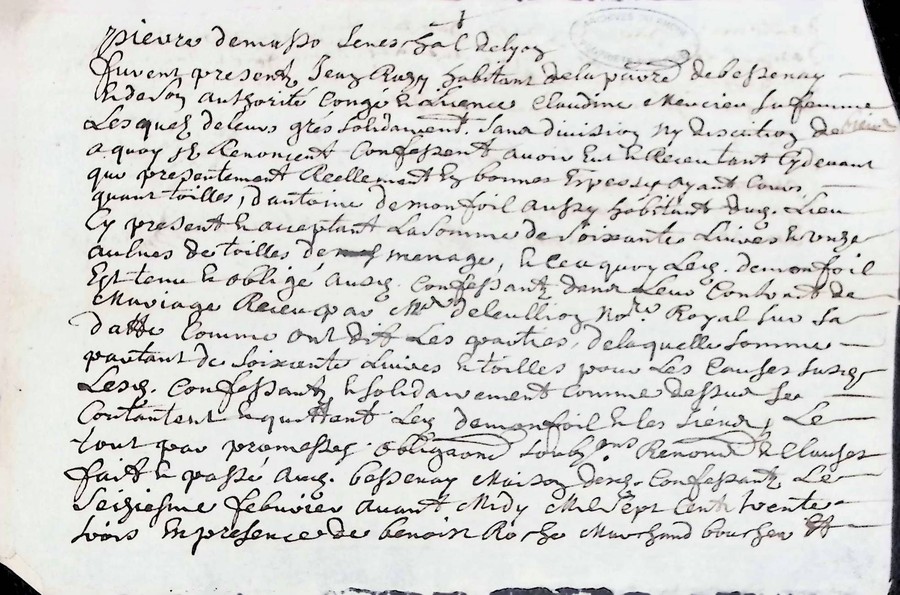 pierre demasso seneschal de lyon
furent presents Jean Ruzy habitant de la parre de bessenay
& de son authorité congé & licence Claudine Mercier sa femme
Lesquels de leurs grés solidairement sans division ny discution de biens
a quoy ils Renoncent Confessent avoir Eut & Receu tant Cydevant
que presentement Reellement En bonnes Espesses ayant Cours
quant toilles, d'antoine demonfoil aussy habitant dud. Lieu
Cy present & acceptant La somme de soixante Livres & unze
aulnes de toilles de menage, & ce a quoy Led. demonfoil
Est tenu & obligé ausd. Confessants dans Leur Contrat de
Mariage Receu par Mre delullion Nore Royal sur sa
datte Comme ont dit Les parties, de laquelle somme
partant de soixente Livres & toilles pour Les Causes susd.
Lesd. Confessants & solidairement Comme dessus se
Contantent & quittent Led demonfoil & les siens, Le
tout par promesses obligaons soubmns Renons & Clauses
fait & passé aud. bessenay Maison desd. Confessants Le
seiziesme febvrier avant Midy Mil sept Cent trente
trois En presence de benoist Roche Marchand boucher &